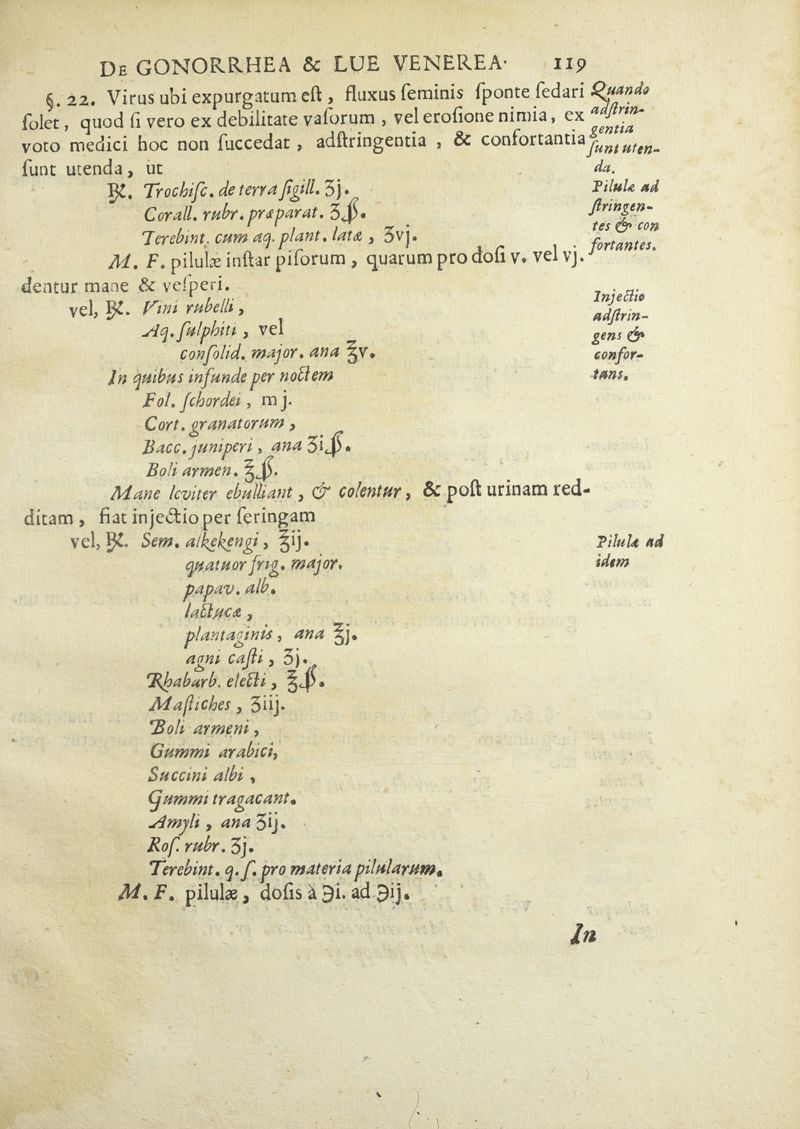 De GONORRHEA & LUE VENEREA· 119
§. 22. Virus ubi expurgatum eſt, fluxus ſeminis ſponte ſedari
ſolet, quod ſi vero ex debilitate vaſorum, vel eroſione nimia, ex
voto medici hoc non ſuccedat, adſtringentia, & confortantia
ſunt utenda, ut
Quando
adſtrin-
gentia
ſunt uten-
da.
℞. Trochiſc. de terra ſigill. ʒj.
Corall. rubr. præparat. ʒß.
Terebint. cum aq. plant. latæ, ʒvj.
M. F. pilulæ inſtar piſorum, quarum pro doſi v. vel vj.
dentur mane & veſperi.
Pilulæ ad
ſtringen-
tes & con
fortantes.
vel, ℞. Vini rubelli,
Aq. ſulphiti, vel
conſolid. major. ana ℥v.
In quibus infunde per noctem
Fol. ſchordei, mj.
Cort. granatorum,
Bacc. juniperi, ana ʒiß.
Boli armen. ℥ß.
Mane leviter ebulliant, & colentur, & poſt urinam red-
ditam, fiat injectio per ſeringam
Injectio
adſtrin-
gens &
confor-
tans.
vel, ℞. Sem. alkekengi, ℥ij.
quatuor frig. major.
papav. alb.
lactucæ,
plantaginis, ana ℥j.
agni caſti, ʒj.
Rhabarb. electi, ℥ß.
Maſtiches, ʒiij.
Boli armeni,
Gummi arabici,
Succini albi,
Gummi tragacant.
Amyli, ana ʒij.
Roſ. rubr. ʒj.
Terebint. q. ſ. pro materia pilularum.
M. F. pilulæ, doſis à ℈i. ad ℈ij.
Pilulæ ad
idem
In